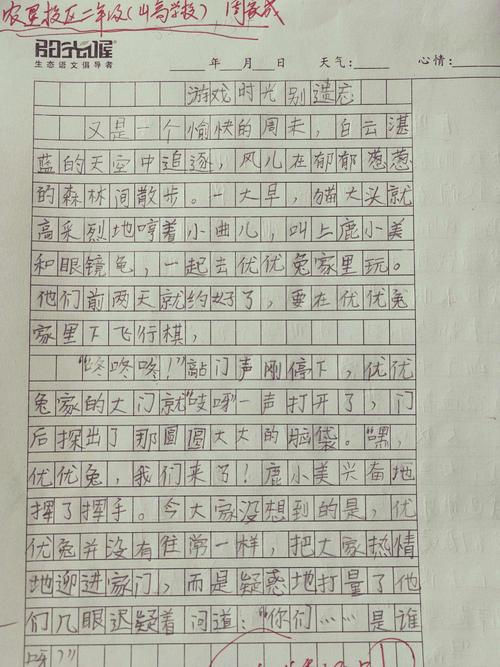 农垦校区二年级(山高学校) 周
阳光喔
生态语文倡导者
年 月 日 天气: 心情:
游戏时光别遗忘
又是一个愉快的周末,白云湛
蓝的天空中追逐,风儿在郁郁葱葱
的森林间散步。一大早,猫大头就
高采烈地哼着小曲儿,叫上鹿小美
和眼镜龟,一起去优优兔家里玩。
他们前两天就约好了,要在优优兔
家里下飞行棋,
“咚咚咚!”敲门声刚停下,优优
兔家的大门就“吱呀”一声打开了,门
后探出了那圆圆大大的脑袋。“嘿,
优优兔,我们来了!鹿小美兴奋地
挥了挥手。令大家没想到的是,优
优兔并没有往常一样,把大家热情
地迎进家门,而是疑惑地打量了他
们几眼迟疑着问道:“你们……是谁
呀?”